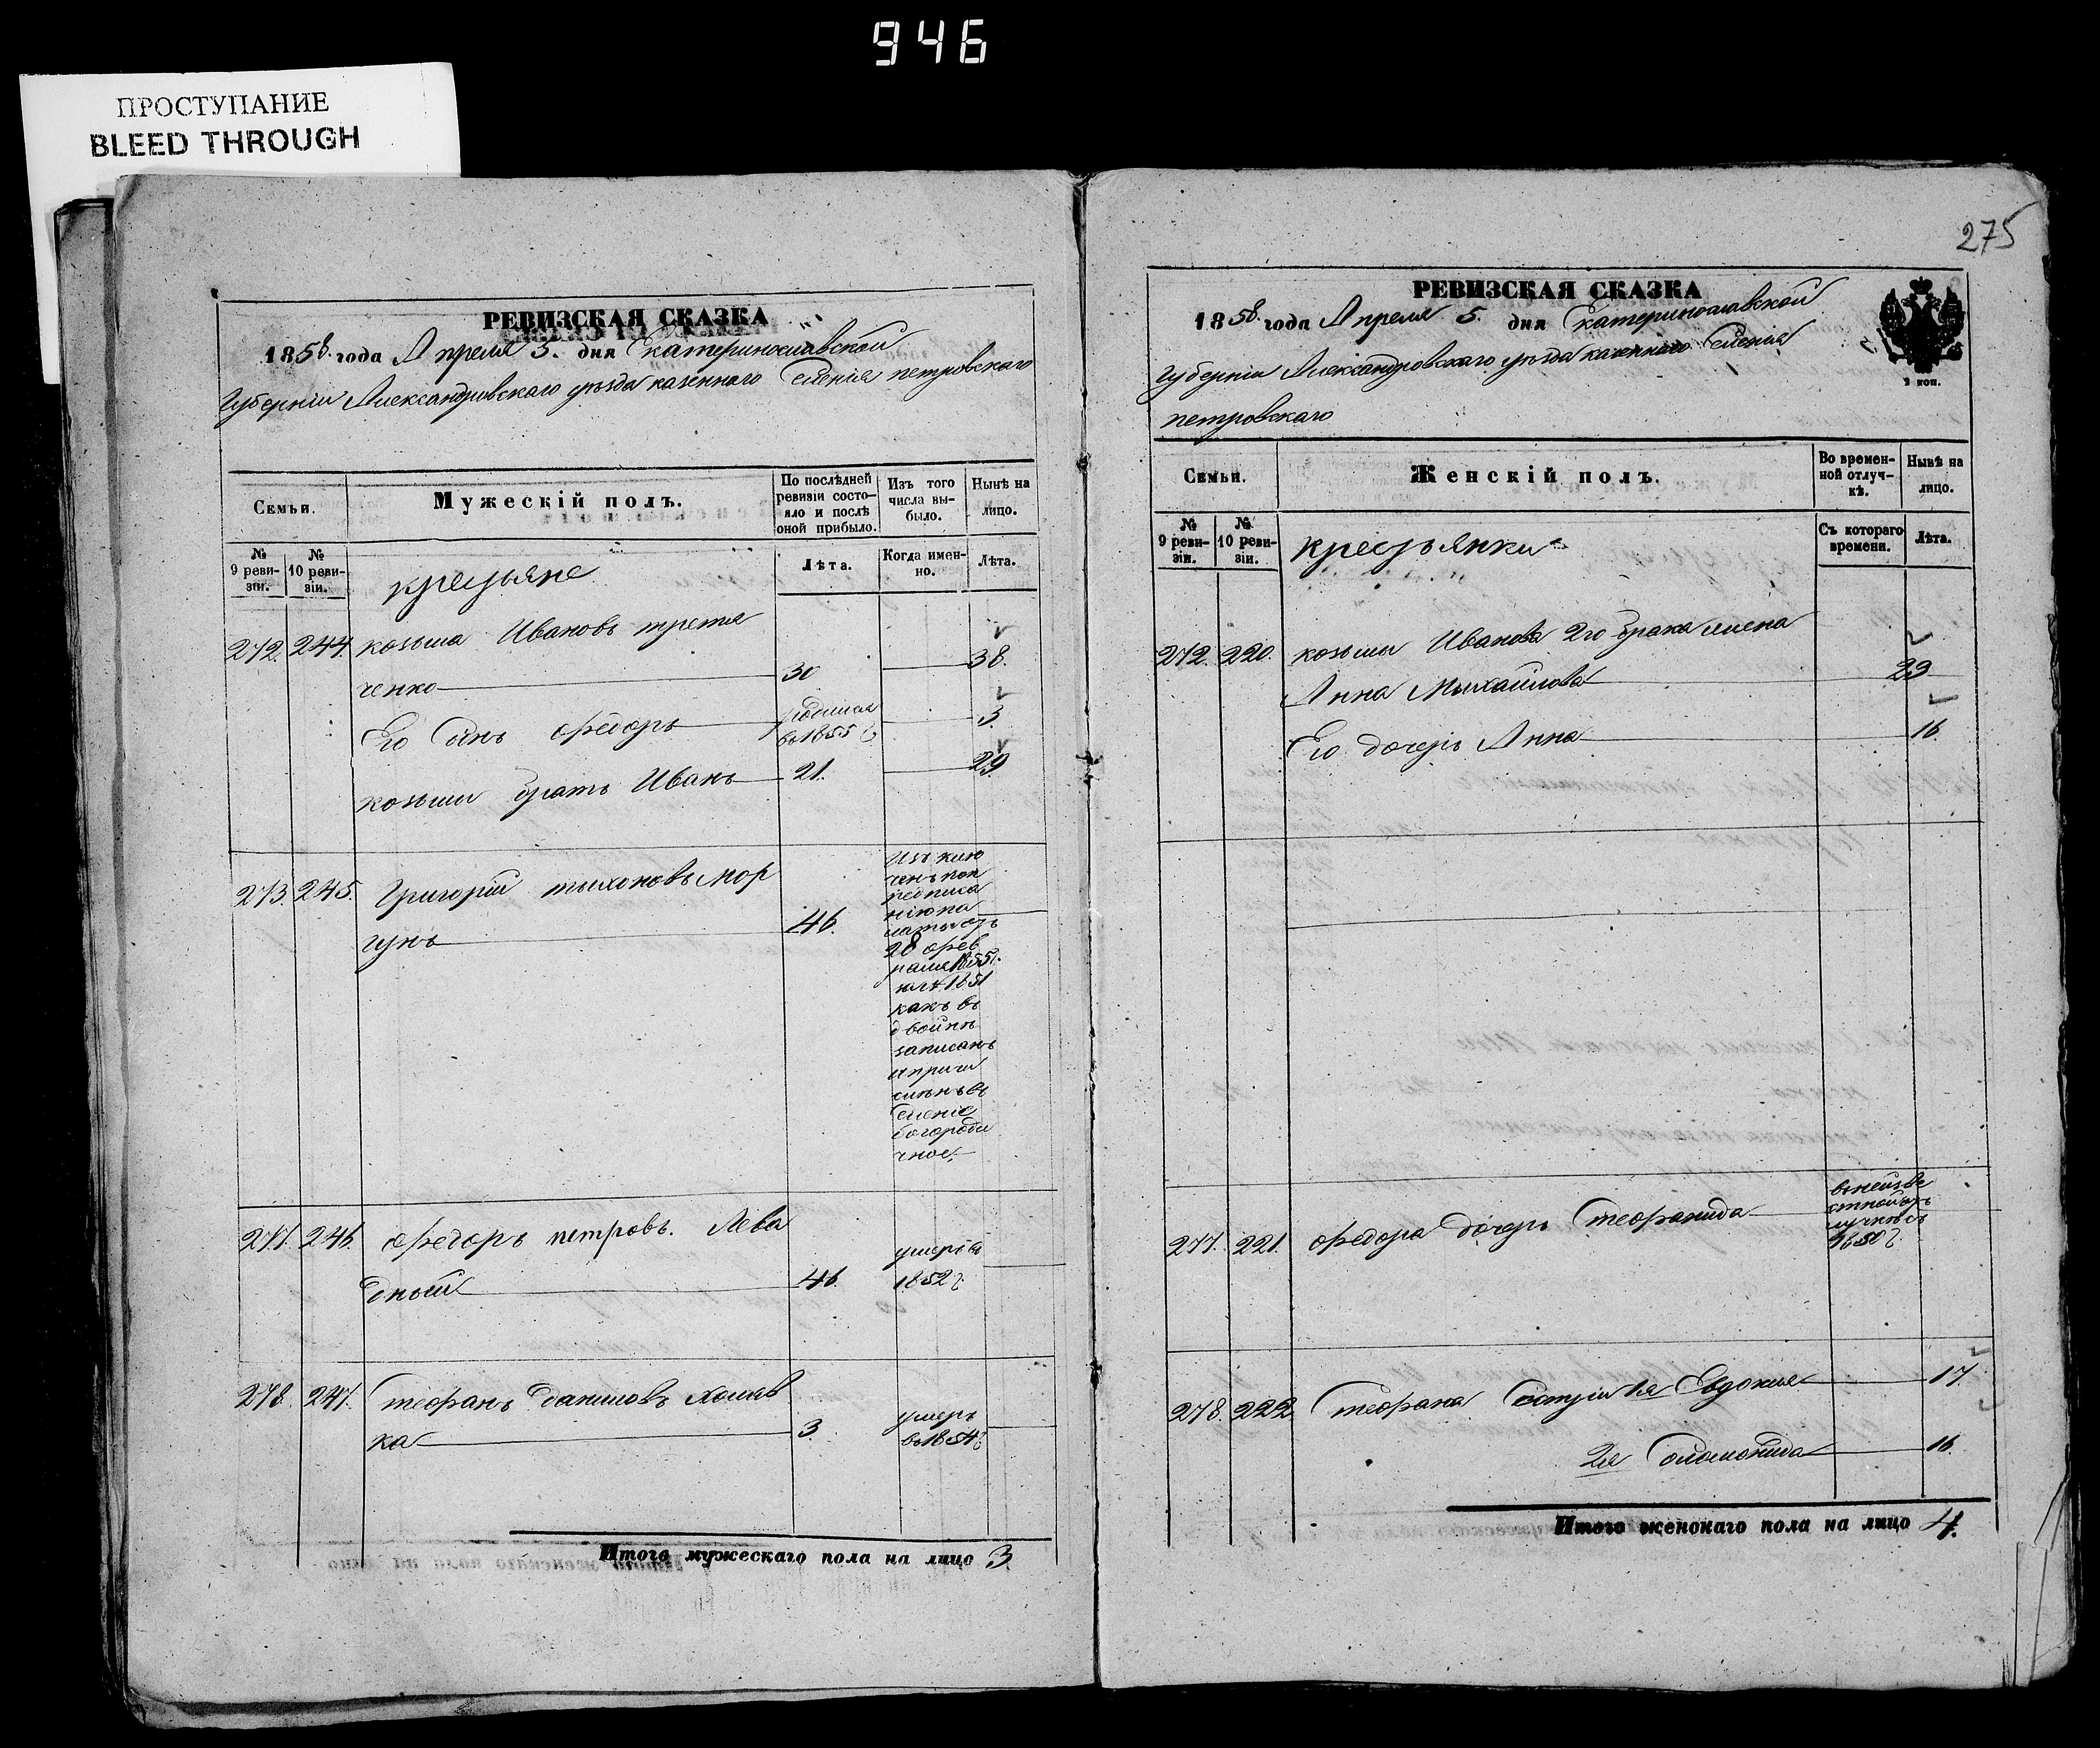 946
ПРОСТУПАНИЕ
BLEED THROUGH
РЕВИЗСКАЯ СКАЗКА
1858 года Апреля 5. дня Екатеринославской
Губерніи Александровскаго уѣзда казеннаго Селенія петровскаго
Семьи.
Мужескій полъ.
По послѣдней ревизіи состояло и послѣ оной прибыло.
Изъ того числа выбыло.
Нынѣ на лицо.
№ 9 ревизіи.
№ 10 ревизіи.
крестьяне
Лѣта.
Когда именно.
Лѣта.
272. 244. козьма Ивановъ третя
ченко 30 38.
Его Сынъ Федоръ родился въ 1855 г. 3.
козьмы братъ Иванъ 21. 29
273. 245. Григорій тихоновъ Мор
гунъ 46.
исклю
ченъ по
предписа
нію па
латы отъ
28 фев
раля 1855 г.
1851
какъ въ
двойнѣ
записанъ
и причи
сленъ въ
Селеніе
богороди
чное.
277. 246. Федоръ петровъ. Лева
дный 46. умеръ въ 1852 г.
278. 247. Стефанъ Даниловъ Халяв
ка 3. умеръ въ 1854 г.
Итого мужескаго пола на лицо 3.
275
РЕВИЗСКАЯ СКАЗКА
1858. года Апреля 5. дня Екатеринославской
Губерніи Александровскаго уѣзда казеннаго Селенія
петровскаго
2 коп.
Семьи.
Женскій полъ.
Во временной отлучкѣ.
Нынѣ на лицо.
№ 9 ревизіи.
№ 10 ревизіи.
крестьянки
Съ котораго времени.
Лѣта.
272. 220. козьмы Иванова 2го брака жена
Анна Михайлова 29
Его дочерь Анна 16.
277. 221. Федора дочерь Стефанида
въ неизве
стной от
лучкѣ съ
1850 г.
278. 222. Стефана Сестры 1я Евдокия 17.
2я Соломонида 16.
Итого женскаго пола на лицо 4.